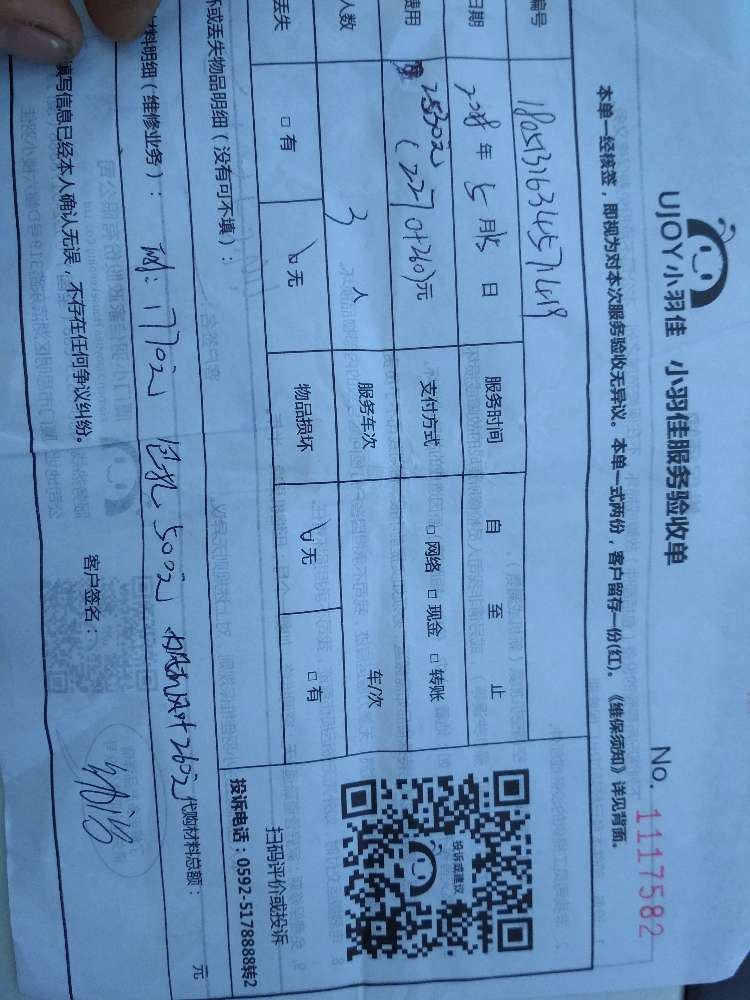 UJOY小羽佳 小羽佳服务验收单
No. 1117582
本单一经核签，即视为对本次服务验收无异议。本单一式两份，客户留存一份(红)。《维保须知》详见背面。
编号
日期 2018年5月15日 服务时间 自 至 止
费用 2530元 (2270+260)元 支付方式 □网络 □现金 □转账
人数 3人 服务车次 车/次
丢失 □有 □无 物品损坏 □无 □有
坏或丢失物品明细（没有可不填）：
投诉或建议
扫码评价或投诉
投诉电话：0592-5178888转2
材料明细（维修业务）： 1770元 500元 260元 代购材料总额： 元
填写信息已经本人确认无误，不存在任何争议纠纷。 客户签名：